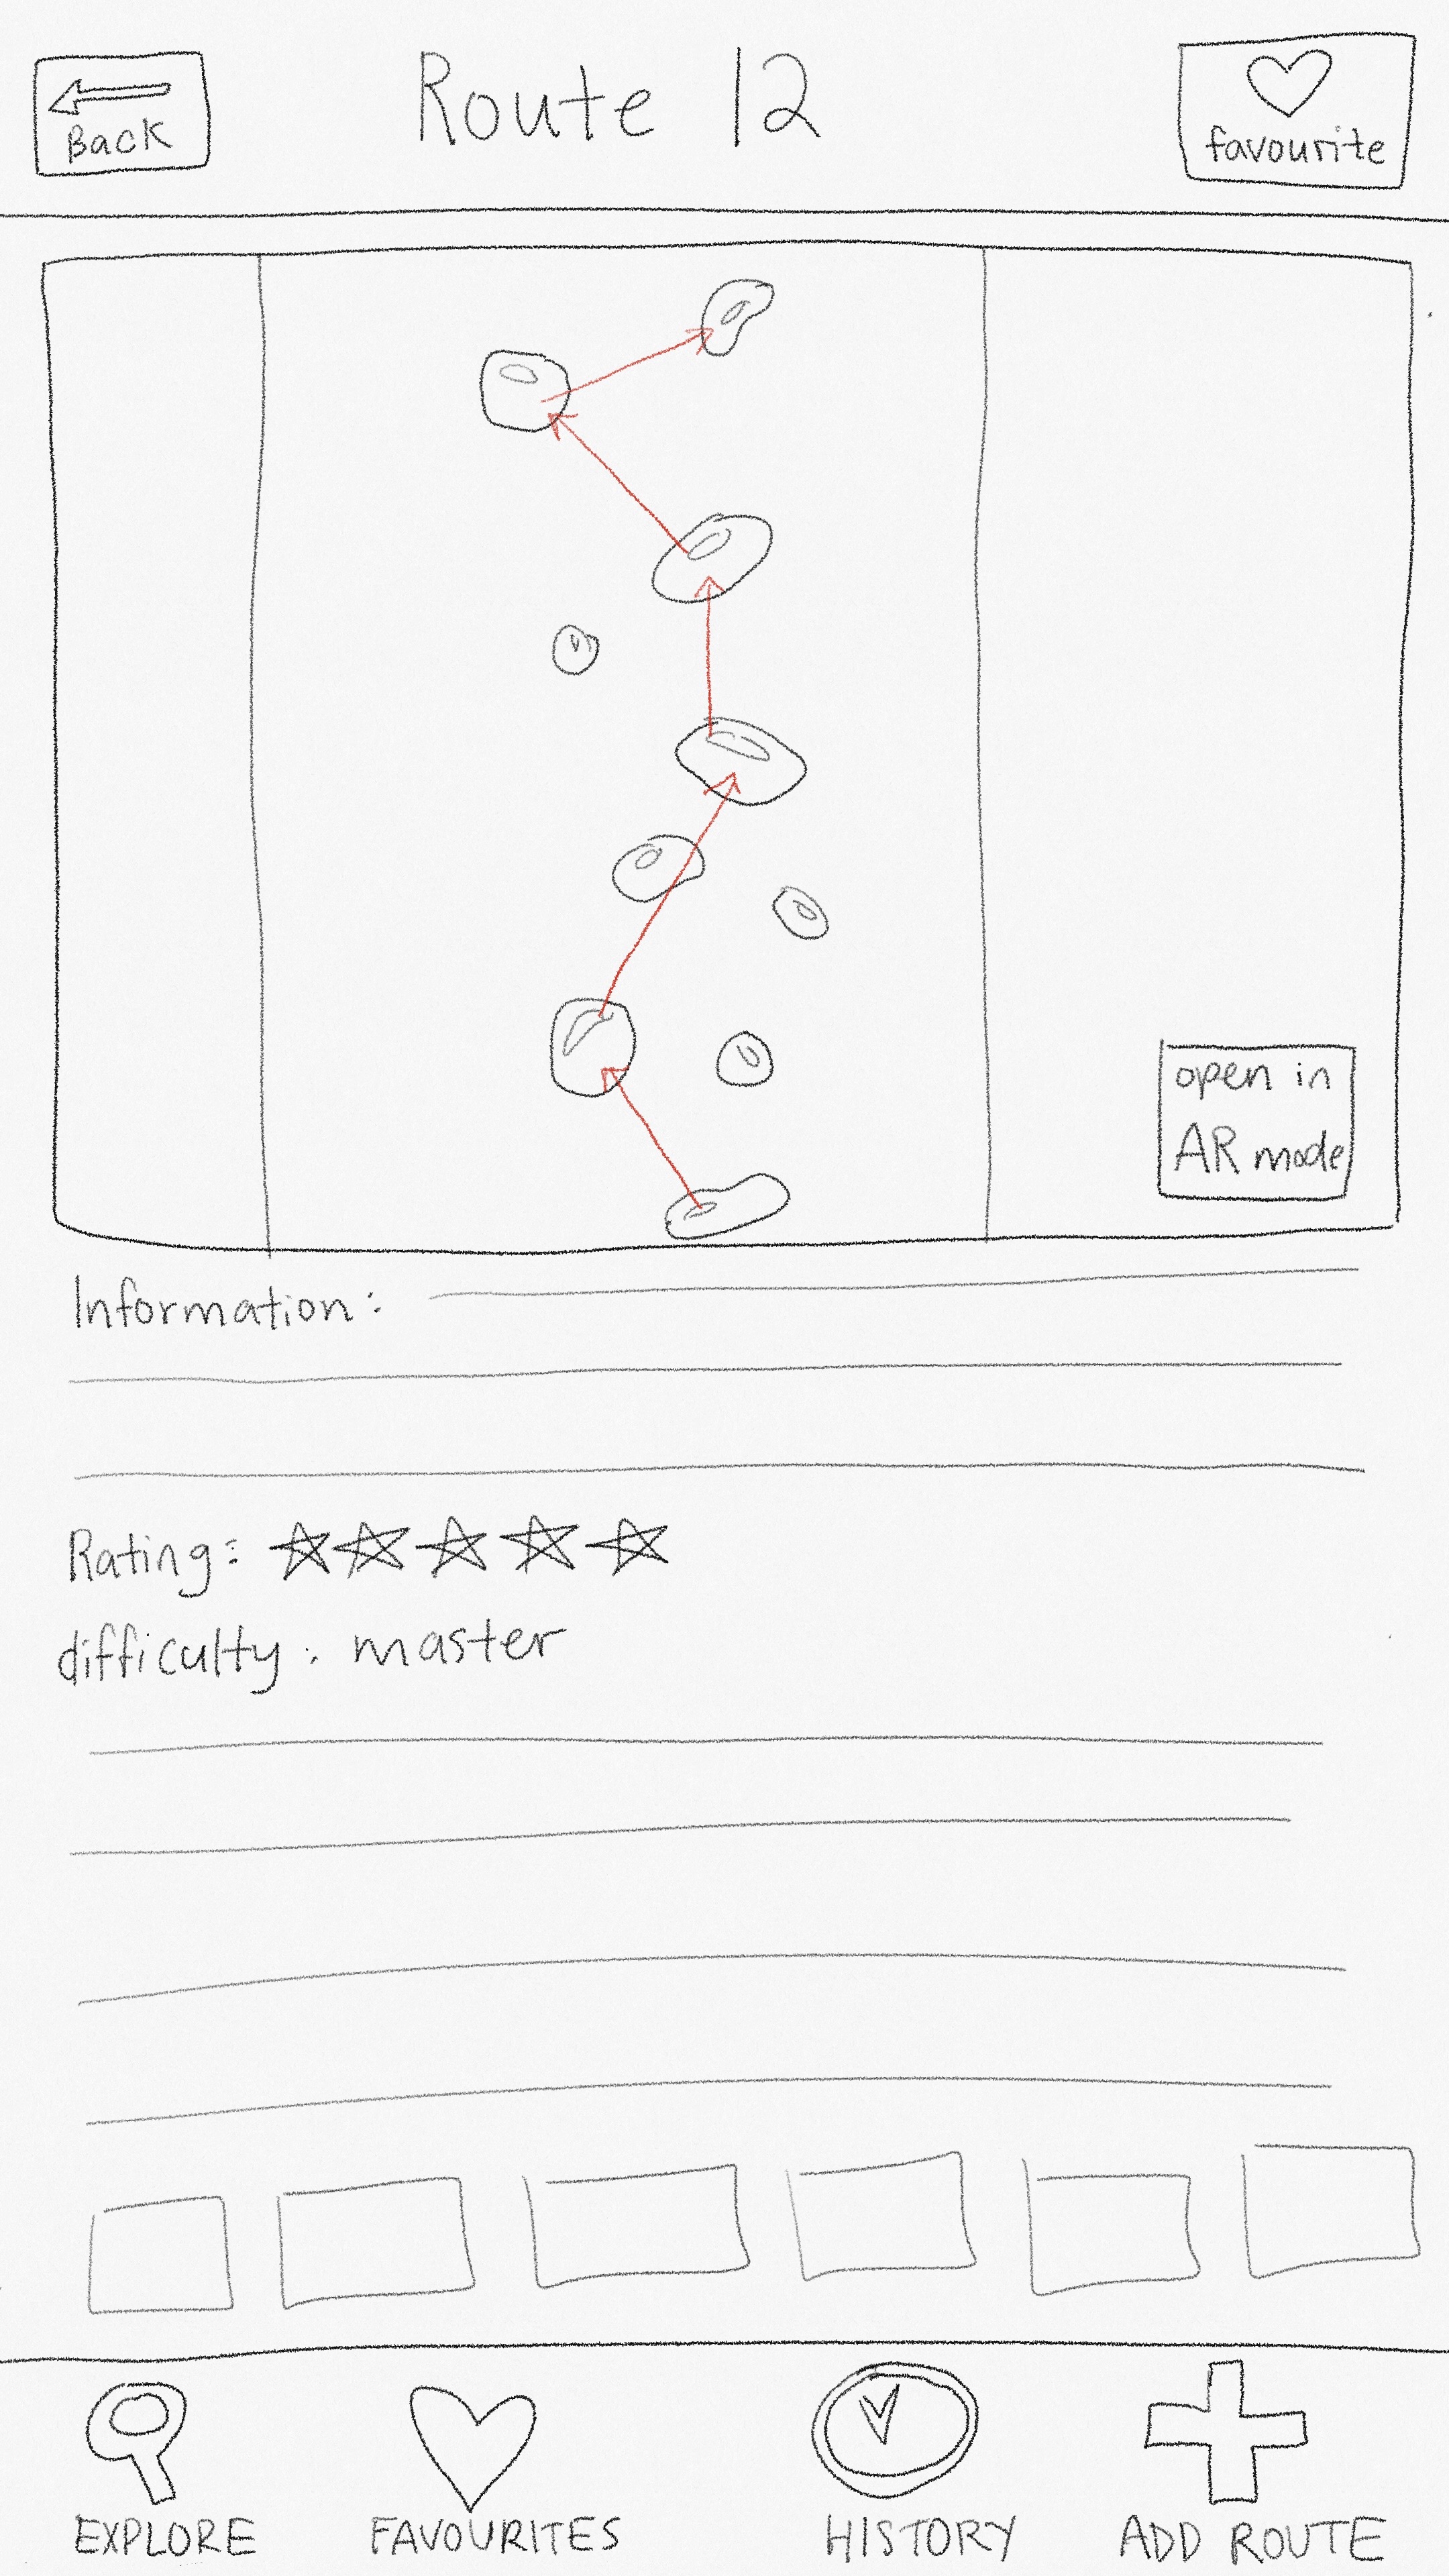 Route 12
Back
favourite
open in
AR mode
Information:
Rating:
difficulty: master
EXPLORE
FAVOURITES
HISTORY
ADD ROUTE